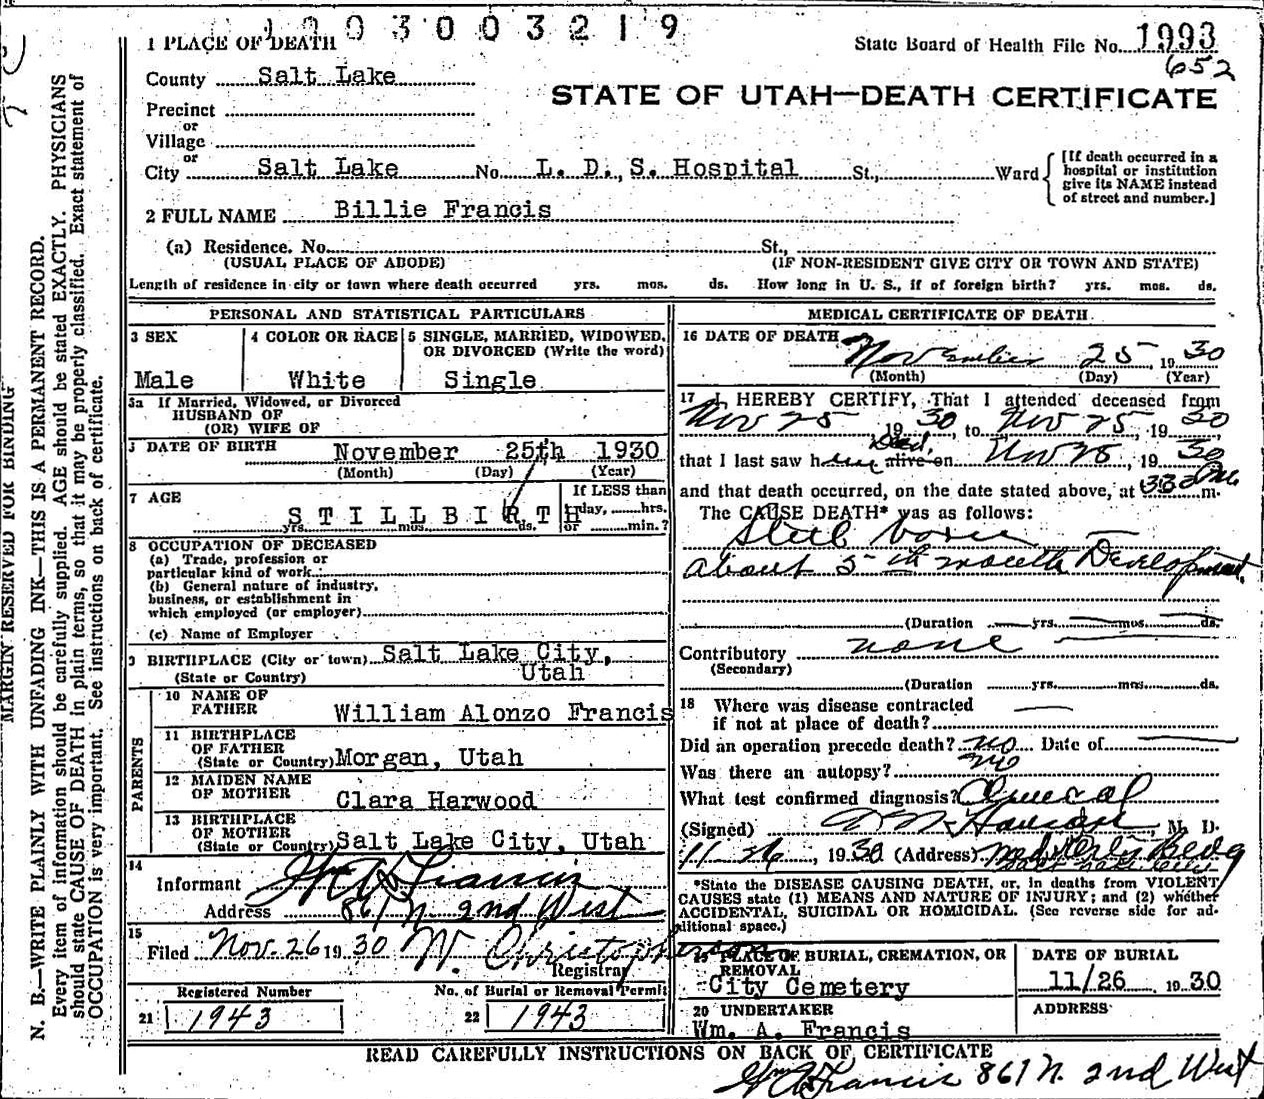 1 9 3 0 0 3 2 1 9
1 PLACE OF DEATH
State Board of Health File No. 1993
652
County Salt Lake
STATE OF UTAH—DEATH CERTIFICATE
Precinct
or
Village
or
City Salt Lake No. L. D. S. Hospital St., Ward
[If death occurred in a
hospital or institution
give its NAME instead
of street and number.]
2 FULL NAME Billie Francis
(a) Residence. No. St.,
(USUAL PLACE OF ABODE) (IF NON-RESIDENT GIVE CITY OR TOWN AND STATE)
Length of residence in city or town where death occurred yrs. mos. ds. How long in U. S., if of foreign birth? yrs. mos. ds.
PERSONAL AND STATISTICAL PARTICULARS
3 SEX
Male
4 COLOR OR RACE
White
5 SINGLE, MARRIED, WIDOWED,
OR DIVORCED (Write the word)
Single
5a If Married, Widowed, or Divorced
HUSBAND OF
(OR) WIFE OF
DATE OF BIRTH November 25th 1930
(Month) (Day) (Year)
7 AGE
If LESS than
1 day, hrs.
or min.?
STILLBIRTH
yrs. mos. ds.
8 OCCUPATION OF DECEASED
(a) Trade, profession or
particular kind of work
(b) General nature of industry,
business, or establishment in
which employed (or employer)
(c) Name of Employer
9 BIRTHPLACE (City or town) Salt Lake City,
(State or Country) Utah
PARENTS
10 NAME OF
FATHER William Alonzo Francis
11 BIRTHPLACE
OF FATHER
(State or Country) Morgan, Utah
12 MAIDEN NAME
OF MOTHER Clara Harwood
13 BIRTHPLACE
OF MOTHER
(State or Country) Salt Lake City, Utah
14
Informant Wm A Francis
Address 861 N 2nd West
15
Filed Nov. 26 1930 W. Christopherson
Registrar
Registered Number
21 1943
No. of Burial or Removal Permit
22 1943
MEDICAL CERTIFICATE OF DEATH
16 DATE OF DEATH
November 25 1930
(Month) (Day) (Year)
17 I HEREBY CERTIFY, That I attended deceased from
Nov 25 1930, to Nov 25, 1930
Dead
that I last saw him alive on Nov 25, 1930
and that death occurred, on the date stated above, at 3 30 P m.
The CAUSE DEATH* was as follows:
Still born
about 5th month Development
(Duration yrs. mos. ds.
Contributory none
(Secondary)
(Duration yrs. mos. ds.
18 Where was disease contracted
if not at place of death?
Did an operation precede death? no Date of
Was there an autopsy? no
What test confirmed diagnosis? Clinical
(Signed) M. D.
11 26, 1930 (Address) Bldg
*State the DISEASE CAUSING DEATH, or, in deaths from VIOLENT
CAUSES state (1) MEANS AND NATURE OF INJURY; and (2) whether
ACCIDENTAL, SUICIDAL OR HOMICIDAL. (See reverse side for ad-
ditional space.)
19 PLACE OF BURIAL, CREMATION, OR
REMOVAL
City Cemetery
DATE OF BURIAL
11/26 1930
20 UNDERTAKER
Wm. A. Francis
ADDRESS
READ CAREFULLY INSTRUCTIONS ON BACK OF CERTIFICATE
Wm A Francis 861 N. 2nd West
MARGIN RESERVED FOR BINDING
N. B.—WRITE PLAINLY WITH UNFADING INK—THIS IS A PERMANENT RECORD.
Every item of information should be carefully supplied. AGE should be stated EXACTLY. PHYSICIANS
should state CAUSE OF DEATH in plain terms, so that it may be properly classified. Exact statement of
OCCUPATION is very important. See instructions on back of certificate.